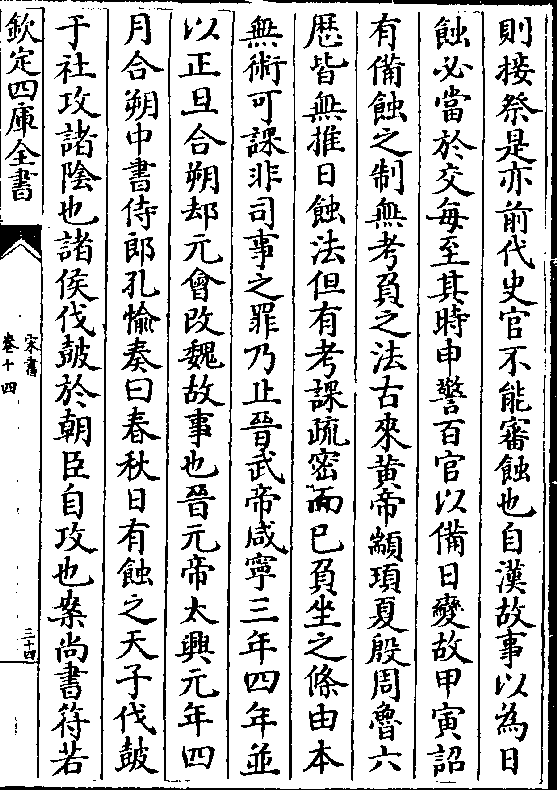 則接祭是亦前代史官不能審蝕也自漢故事以為日
蝕必當於交每至其時申警百官以備日變故甲寅詔
有備蝕之制無考負之法古來黄帝顓頊夏殷周魯六
厯皆無推日蝕法但有考課疏密而已負坐之條由本
無術可課非司事之罪乃止晉武帝咸寧三年四年並
以正旦合朔却元會改魏故事也晉元帝太興元年四
月合朔中書侍郎孔愉奏曰春秋日有蝕之天子伐鼓
于社攻諸陰也諸侯伐鼓於朝臣自攻也案尚書符若
欽定四庫全書
宋書
卷十四
三十四